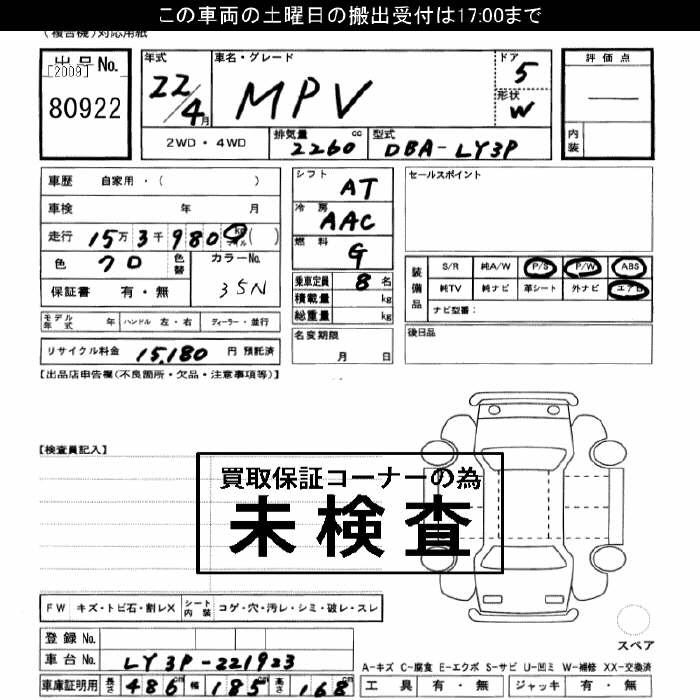 この車両の土曜日の搬出受付は17:00まで
(複合機)対応用紙
出品No.
[2009]
80922
年式 車名・グレード ドア 評価点
22/4月 MPV 5
形状
W
2WD・4WD 排気量 cc 型式 内装
2260 DBA-LY3P
車歴 自家用・( ) シフト AT セールスポイント
車検 年 月 冷房 AAC
走行 15万3千980 km マイル ( ) 燃料 G
色 クロ 色替 カラーNo. 35N
保証書 有・無
乗車定員 8名
積載量 kg
総重量 kg
装備品 S/R 純A/W P/S P/W ABS
純TV 純ナビ 革シート 外ナビ エアB
ナビ型番:
モデル年式 年 ハンドル 左・右 ディーラー・並行
名変期限 月 日
後日品
リサイクル料金 15,180 円 預託済
【出品店申告欄(不良箇所・欠品・注意事項等)】
【検査員記入】
買取保証コーナーの為
未検査
FW キズ・トビ石・割レX シート内装 コゲ・穴・汚レ・シミ・破レ・スレ
スペア
登録No.
車台No. LY3P-221923
A-キズ C-腐食 E-エクボ S-サビ U-凹ミ W-補修 XX-交換済
車庫証明用 長さ 486cm 幅 185cm 高さ 168cm
工具 有・無 ジャッキ 有・無